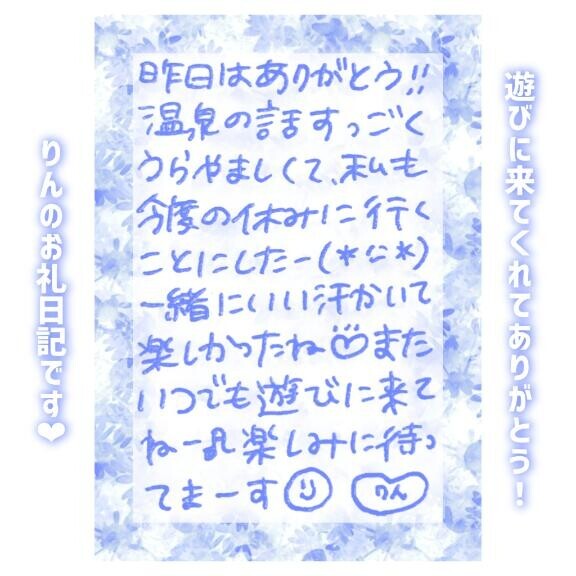 遊びに来てくれてありがとう！
昨日はありがとう!!
温泉の話すっごく
うらやましくて、私も
今度の休みに行く
ことにしたー(*ひ*)
一緒にいい汗かいて
楽しかったね♡また
いつでも遊びに来て
ねー♪楽しみに待っ
てまーす☺ りん
りんのお礼日記です❤